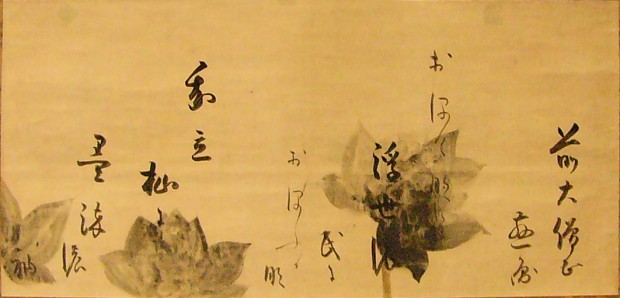 前大僧正
慈圓
おほけなく
浮世の
民に
おほふ
哉
我立
杣に
墨染
濃
袖